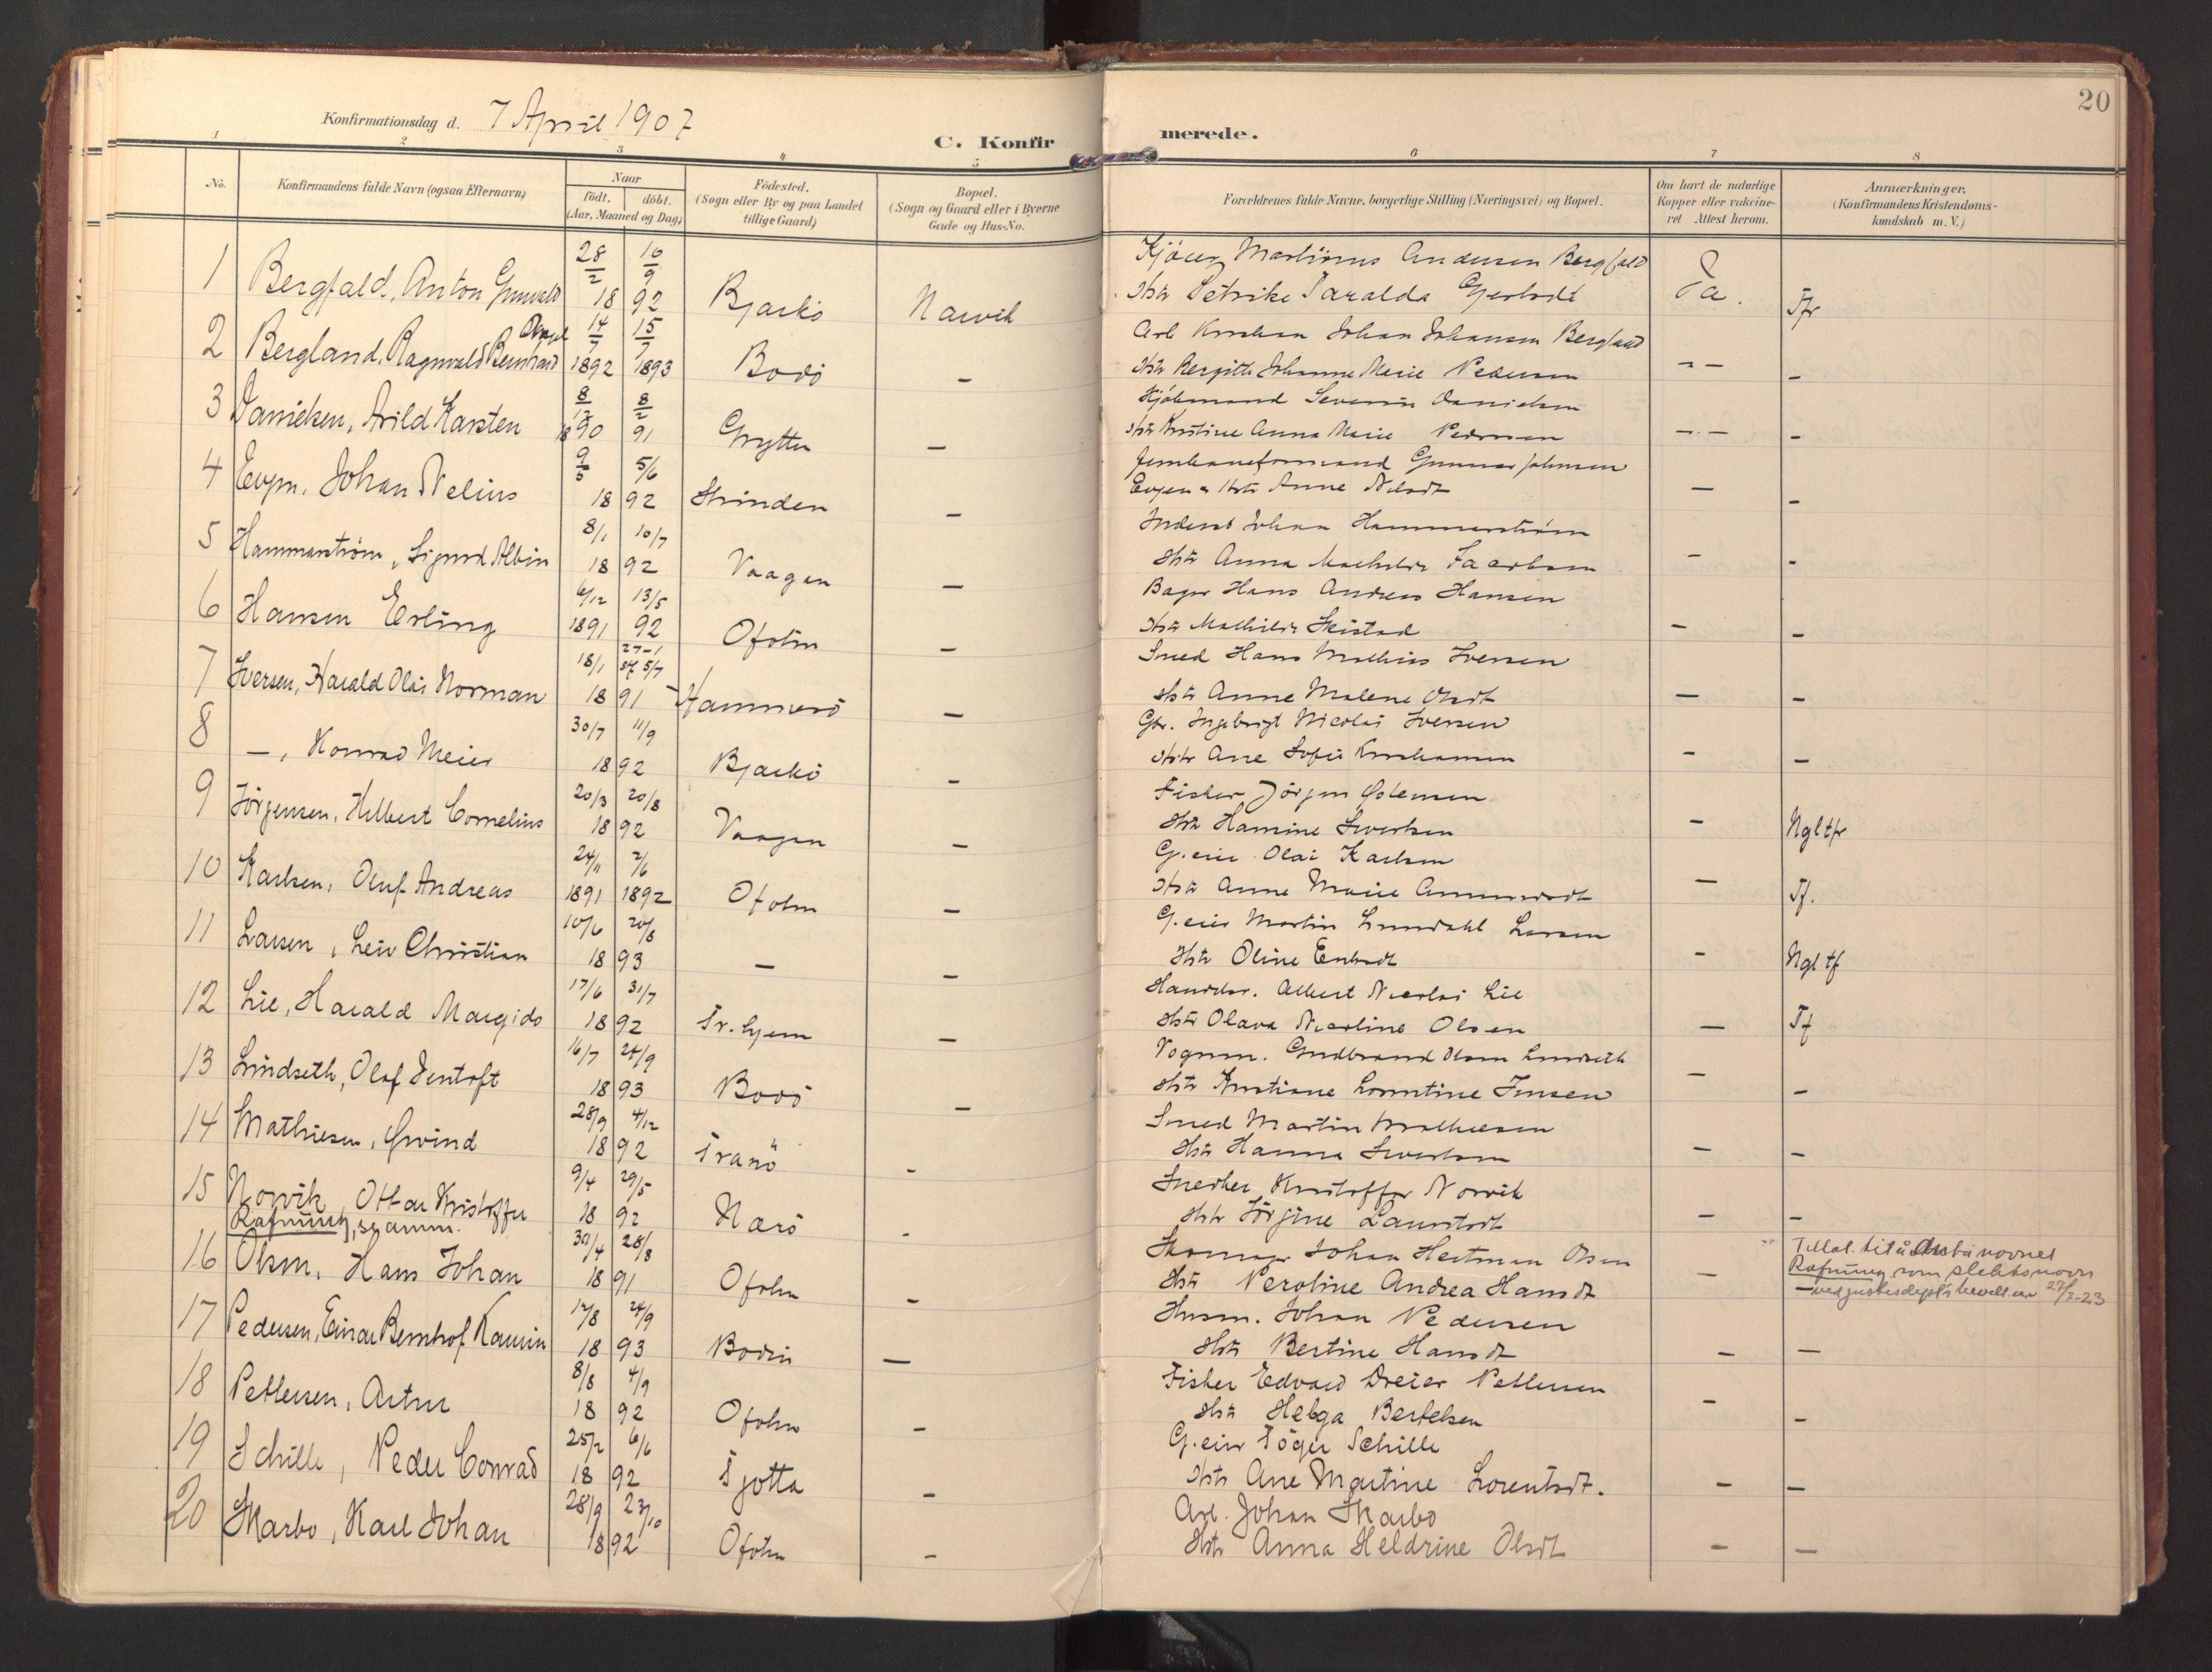 20
Konfirmationsdag d. 7 April 1907
C. Konfirmerede.
1 2 3 4 5 6 7 8
No.
Konfirmandens fulde Navn (ogsaa Efternavn)
Naar
født. døbt.
(Aar, Maaned og Dag)
Födested.
(Sogn eller By og paa Landet
tillige Gaard)
Bopæl.
(Sogn og Gaard eller i Byerne
Gade og Hus-No.
Forældrenes fulde Navne, borgerlige Stilling (Næringsvei) og Bopæl.
Om havt de naturlige
Kopper eller vakcine-
ret Attest herom.
Anmærkninger.
(Konfirmandens Kristendoms-
kundskab m. V.)
1 Bergfald, Anton 28/2 10/9 18 92 Bjarkö Narvik
Andersen Bergfald
Ja. Tfr
2 Bergland, Ragnvald Bernhard 14/7 15/7 1892 1893 Bodö –
Arb Johan Johansen Bergland
Johanne Marie Pedersen – – –
3 Danielsen, Arild Karsten 8/12 8/2 1890 91 Grytten –
Severin Danielsen
Hstr Kristine Anna Marie Pedersen – – –
4 Evjen, Johan Nelius 9/5 5/6 18 92 Strinden –
Jernbaneformand Gunnar Johnsen
Evjen & Hstr Anne Nilsdt – –
5 Hammarström, Sigurd Albin 8/1 10/7 18 92 Vaagan –
Johan Hammarström
Hstr Anna – –
6 Hansen Erling 6/12 13/5 1891 92 Ofoten –
Bager Hans Andreas Hansen
Hstr Mathilde Skistad – –
7 Iversen, Harald Olai Norman 18/1 27-1 5/7 18 91 Hammerö –
Smed Hans Mathias Iversen
Hstr Anne Malene Olsdt – –
8 –, Konrad Meier 30/7 11/9 18 92 Bjarkö –
Gbr. Ingebrigt Nicolai Iversen
Hstr Ane Sofie Kristiansen – –
9 Jörgensen, Hilbert Cornelius 20/3 20/8 18 92 Vaagan –
Fisker Jörgen
Hstr Hansine Sivertsen – Ngl tfr
10 Karlsen, Oluf Andreas 24/11 2/6 1891 1892 Ofoten –
G.eier Olai Karlsen
Hstr Anne Marie – Tf.
11 Larsen, Leiv Christian 10/6 20/8 18 93 – –
G.eier Martin Lundahl Larsen
Hstr Oline – Ngl tf
12 Lie, Harald Margido 17/6 31/7 18 92 Tr.hjem –
Albert Nicolai Lie
Hstr Olava Nicoline Olsen – Tf
13 Lindseth, Olaf Dentoft 16/7 24/9 18 93 Bodö –
Vognm. Gudbrand Olsen Lindseth
Hstr Kristiane Lorentine Jensen – –
14 Mathiesen, Øivind 28/9 4/12 18 92 Tranö –
Smed Martin Mathiesen
Hstr Hanna Sivertsen – –
15 Norvik, Ottar Kristoffer 9/4 29/5 18 92 Nærö –
Snedker Kristoffer Norvik
Hstr Jörgine – –
Rafnung, se anm.
16 Olsen, Hans Johan 30/4 28/8 18 91 Ofoten –
Skomager Johan Hartman Olsen
Hstr Peroline Andrea Hansdt –
Tillat. til å anta navnet
Rafnung som slektsnavn
– ved justisdept's bevill. av 27/2-23
17 Pedersen, Einar Bernhof Kaurin 12/8 24/9 18 93 Bodin –
Husm. Johan Pedersen
Hstr Bertine Hansdt – –
18 Pettersen, Artur 8/8 4/9 18 92 Ofoten –
Fisker Edvard Dreier Pettersen
Hstr Helga Bertelsen – –
19 Schille, Peder Conrad 25/2 6/6 18 92 Tjøtta –
G.eier Töger Schille
Hstr Ane Martine Lorentsdt. – –
20 Skarbo, Karl Johan 28/9 23/10 18 92 Ofoten –
Arb. Johan Skarbo
Hstr Anna Heldrine Olsdt – –